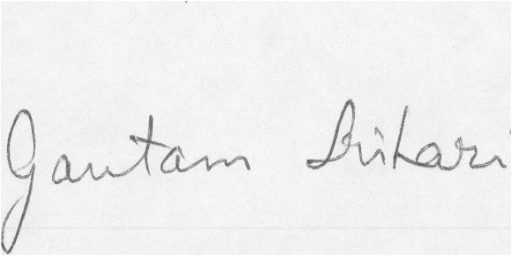 Gautam Srihari